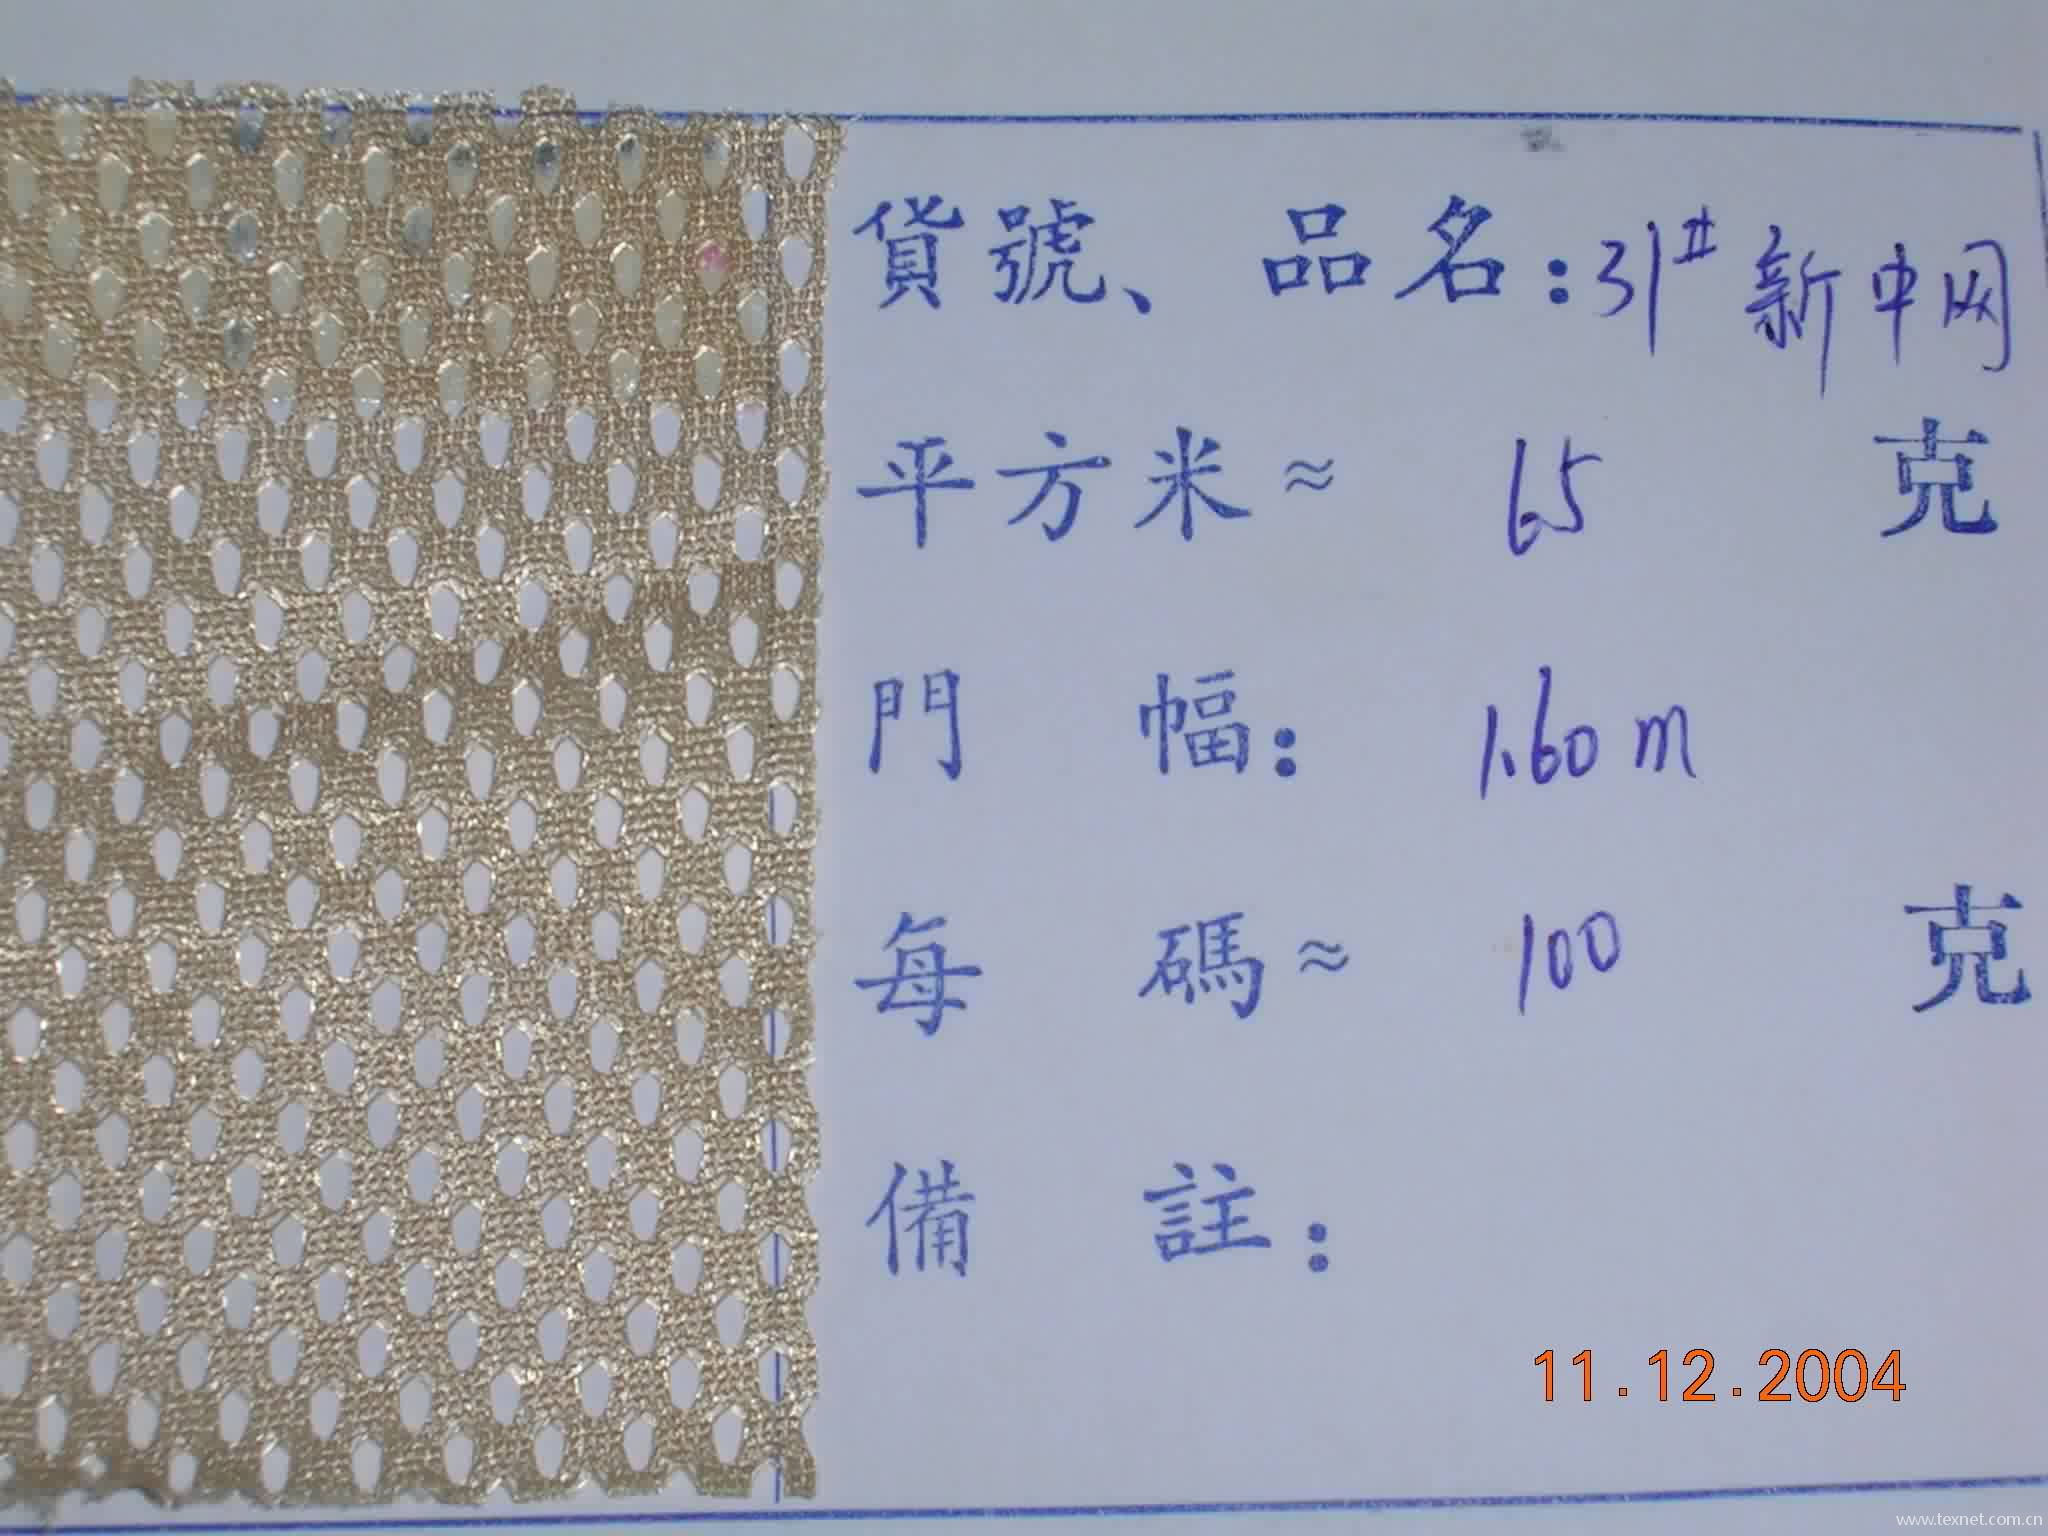 貨號、品名:31# 新中网
平方米≈ 65 克
門幅: 1.60 m
每碼≈ 100 克
備註:
11.12.2004
www.texnet.com.cn